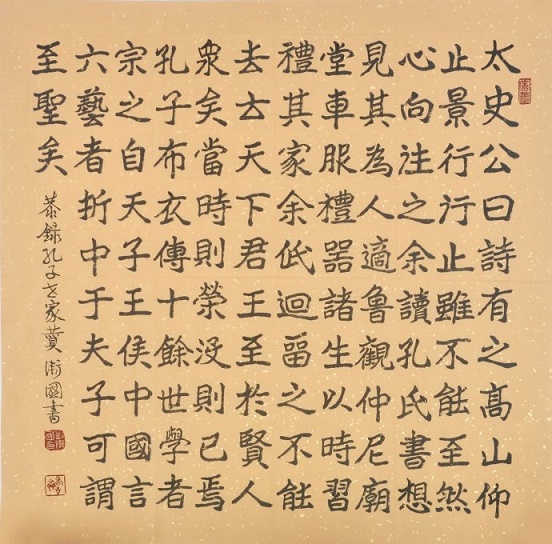 太史公曰詩有之高山仰
止景行行止雖不能至然
心向往之余讀孔氏書想
見其為人適魯觀仲尼廟
堂車服禮器諸生以時習
禮其家余低迴留之不能
去云天下君王至於賢人
衆矣當時則榮没則已焉
孔子布衣傳十餘世學者
宗之自天子王侯中國言
六藝者折中于夫子可謂
至聖矣
恭録孔子世家衛國書